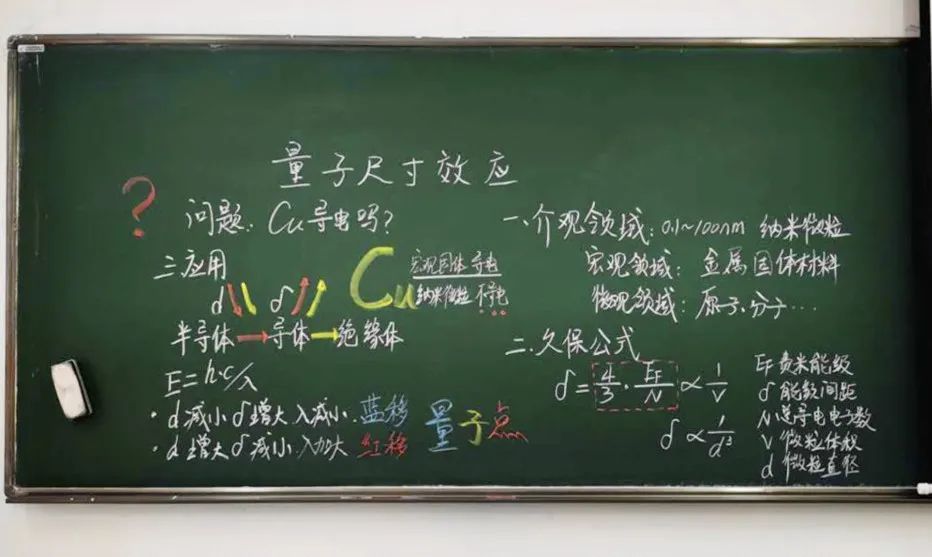 量子尺寸效应
?
问题:Cu导电吗?
一.介观领域:0.1~100nm 纳米微粒
宏观领域:金属固体材料
微观领域:原子、分子…
二.久保公式
δ=4/3·EF/N∝1/V
δ∝1/d³
EF 费米能级
δ 能级间距
N 总导电电子数
V 微粒体积
d 微粒直径
三.应用
d↓↓ δ↑↑
Cu 宏观固体 导电
纳米微粒 不导电
半导体→导体→绝缘体
E=h·c/λ
·d减小δ增大λ减小.蓝移
·d增大δ减小.λ加大 红移
量子点